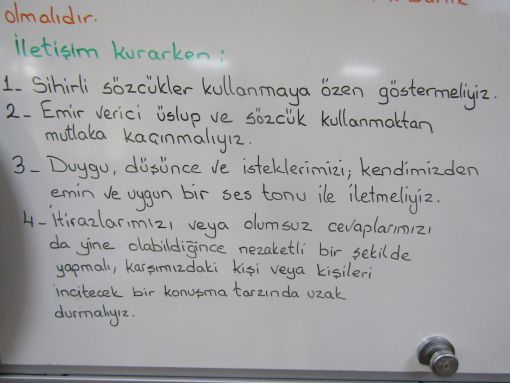 olmalıdır.
İletişim kurarken :
1_ Sihirli sözcükler kullanmaya özen göstermeliyiz.
2_ Emir verici üslup ve sözcük kullanmaktan
mutlaka kaçınmalıyız.
3_ Duygu, düşünce ve isteklerimizi; kendimizden
emin ve uygun bir ses tonu ile iletmeliyiz.
4_ İtirazlarımızı veya olumsuz cevaplarımızı
da yine olabildiğince nezaketli bir şekilde
yapmalı, karşımızdaki kişi veya kişileri
incitecek bir konuşma tarzında uzak
durmalıyız.